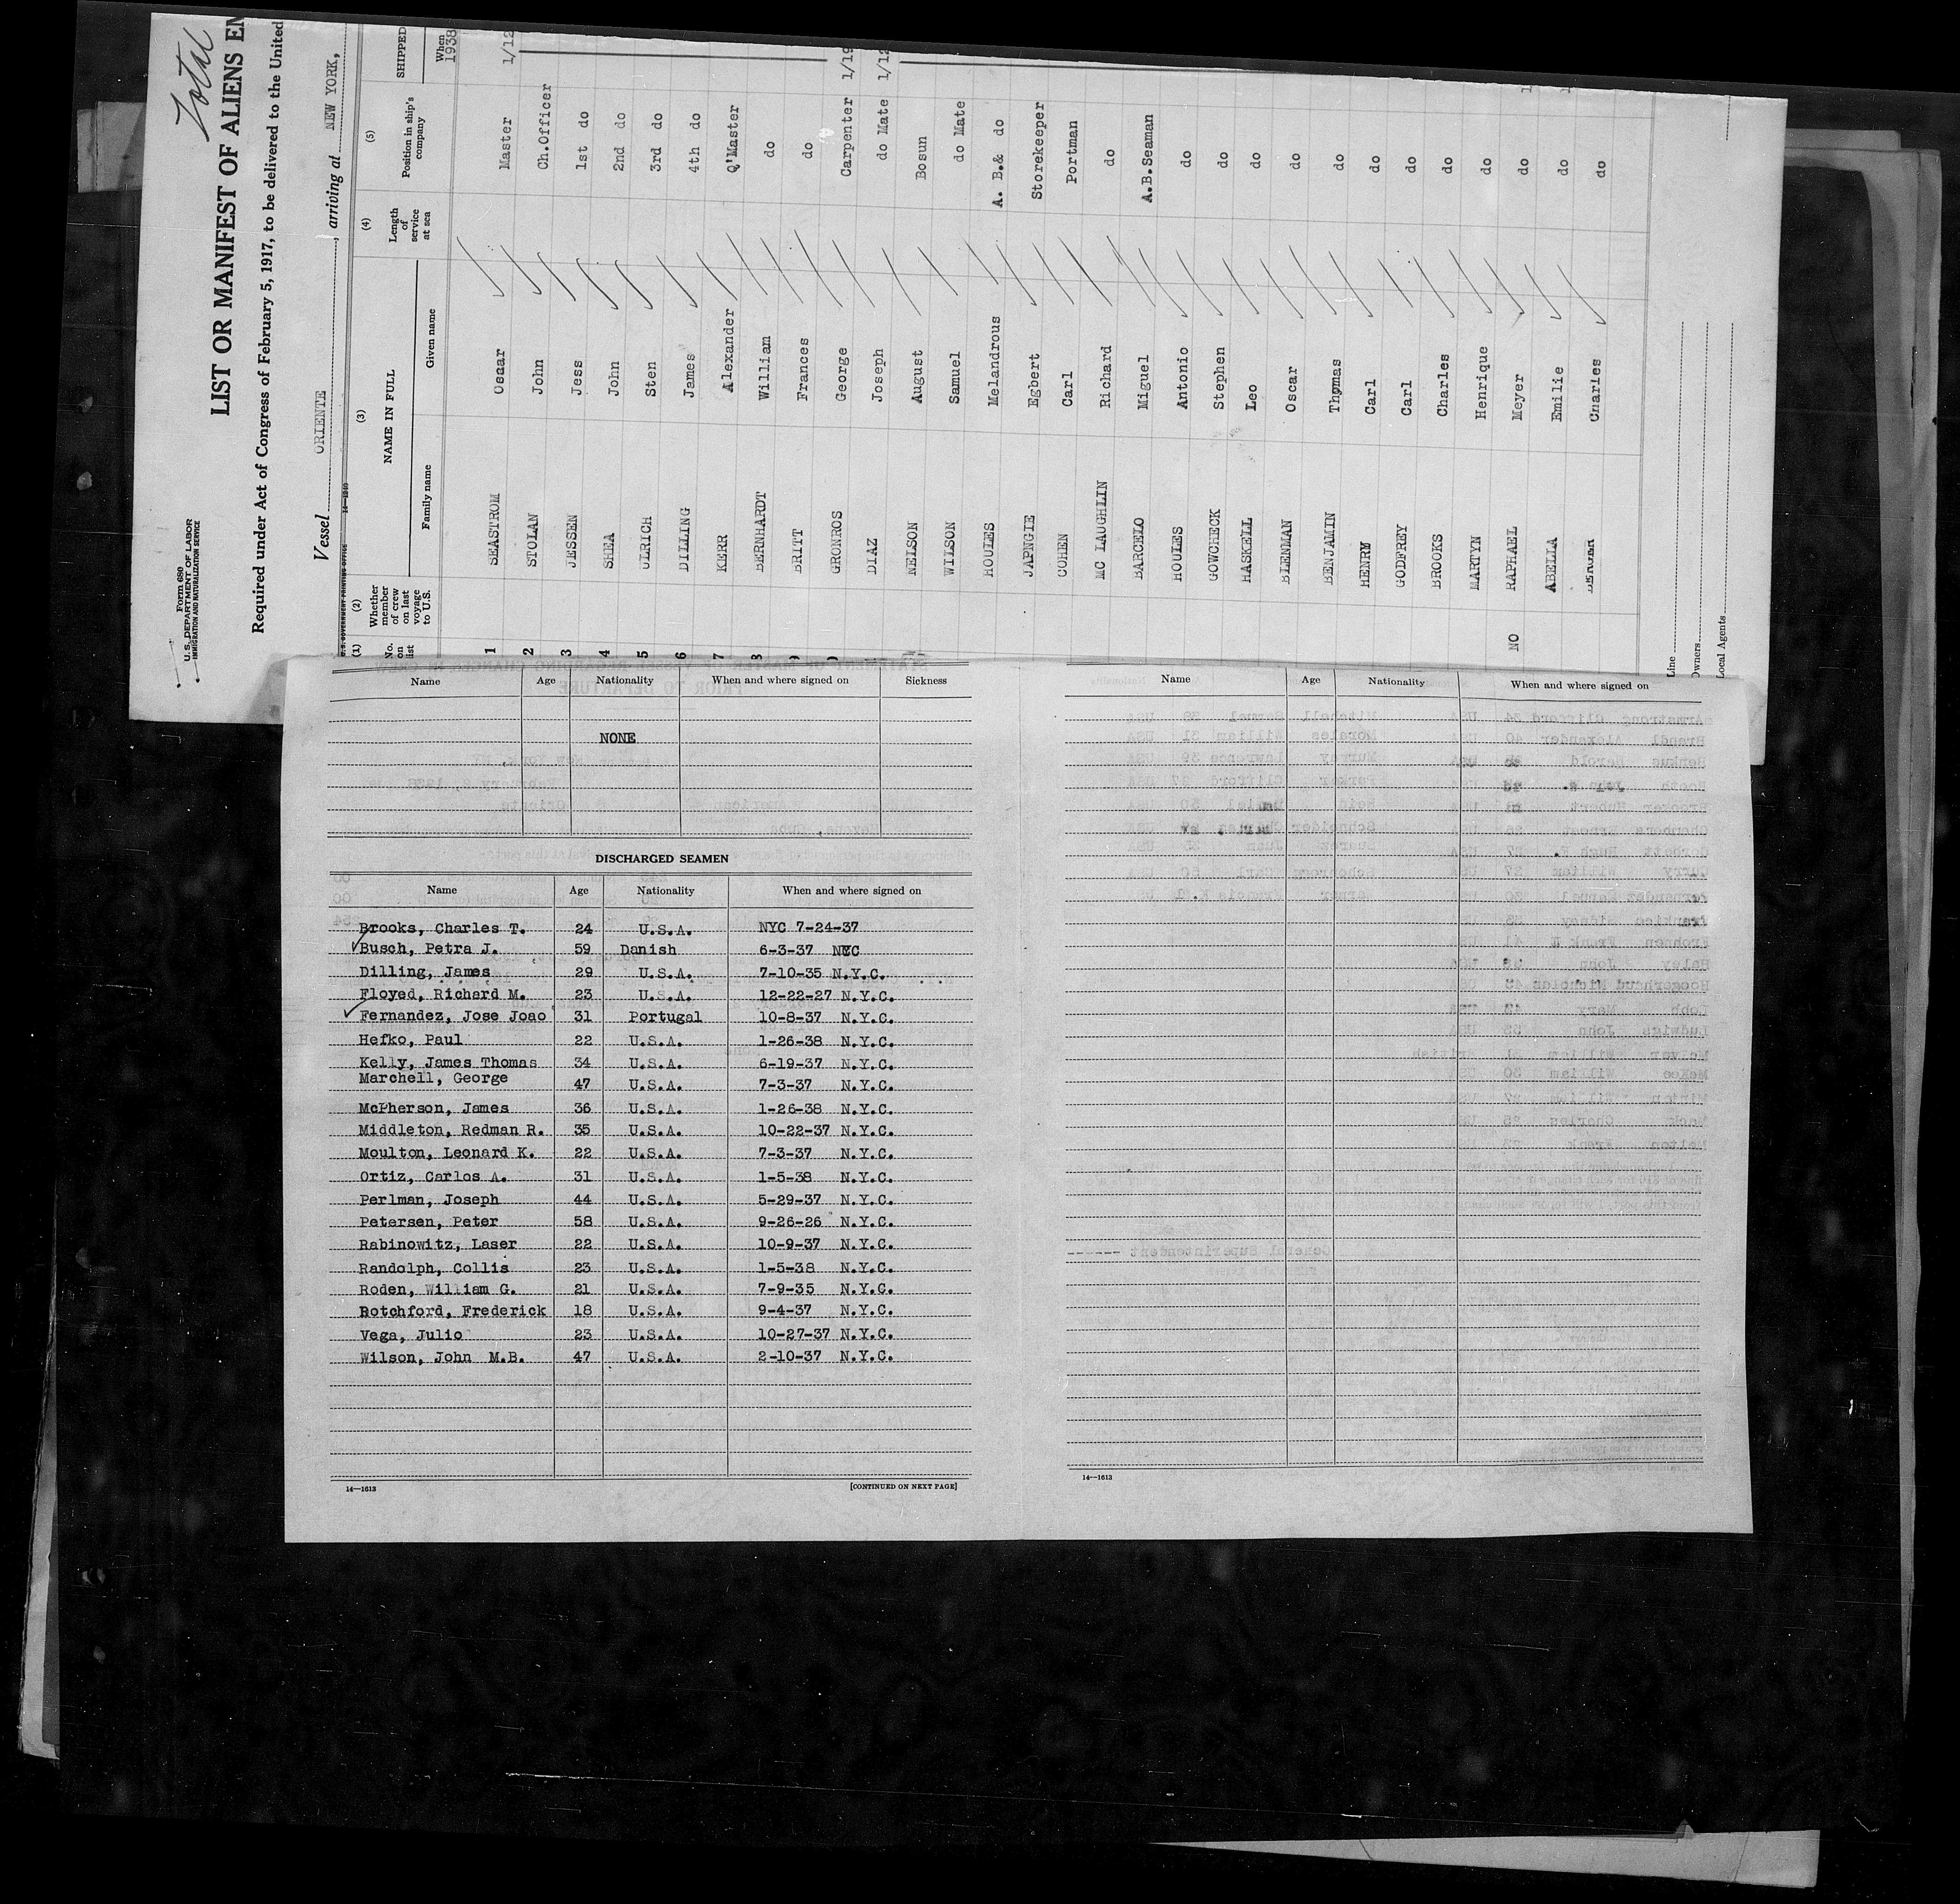 Total
Form 680
U. S. DEPARTMENT OF LABOR
IMMIGRATION AND NATURALIZATION SERVICE
LIST OR MANIFEST OF ALIENS EM
Required under Act of Congress of February 5, 1917, to be delivered to the United
Vessel ORIENTE, arriving at NEW YORK,
U.S. GOVERNMENT PRINTING OFFICE 14—1240
(1) (2) (3) (4) (5)
No. on list Whether member of crew on last voyage to U.S. NAME IN FULL Length of service at sea Position in ship's company SHIPPED
Family name Given name When
1938
1 SEASTROM Oscar Master 1/12
2 STOLAN John Ch.Officer
3 JESSEN Jess 1st do
4 SHEA John 2nd do
5 ULRICH Sten 3rd do
6 DILLING James 4th do
7 KERR Alexander Q'Master
8 BERNHARDT William do
9 BRITT Frances do
GRONROS George Carpenter 1/19
DIAZ Joseph do Mate 1/12
NELSON August Bosun
WILSON Samuel do Mate
HOULES Melandrous A. B.& do
JAPNGIE Egbert Storekeeper
COHEN Carl Portman
MC LAUGHLIN Richard do
BARCELO Miguel A.B.Seaman
HOULES Antonio do
GOWCHECK Stephen do
HASKELL Leo do
BLENMAN Oscar do
BENJAMIN Thomas do
HENRM Carl do
GODFREY Carl do
BROOKS Charles do
MARTYN Henrique do
NO RAPHAEL Meyer do
ABELLA Emilie do
Charles do
Line
Owners
Local Agents
Name Age Nationality When and where signed on Sickness
NONE
DISCHARGED SEAMEN
Name Age Nationality When and where signed on
Brooks, Charles T. 24 U.S.A. NYC 7-24-37
Busch, Petra J. 59 Danish 6-3-37 NYC
Dilling, James 29 U.S.A. 7-10-35 N.Y.C.
Floyed, Richard M. 23 U.S.A. 12-22-27 N.Y.C.
Fernandez, Jose Joao 31 Portugal 10-8-37 N.Y.C.
Hefko, Paul 22 U.S.A. 1-26-38 N.Y.C.
Kelly, James Thomas 34 U.S.A. 6-19-37 N.Y.C.
Marchell, George 47 U.S.A. 7-3-37 N.Y.C.
McPherson, James 36 U.S.A. 1-26-38 N.Y.C.
Middleton, Redman R. 35 U.S.A. 10-22-37 N.Y.C.
Moulton, Leonard K. 22 U.S.A. 7-3-37 N.Y.C.
Ortiz, Carlos A. 31 U.S.A. 1-5-38 N.Y.C.
Perlman, Joseph 44 U.S.A. 5-29-37 N.Y.C.
Petersen, Peter 58 U.S.A. 9-26-26 N.Y.C.
Rabinowitz, Laser 22 U.S.A. 10-9-37 N.Y.C.
Randolph, Collis 23 U.S.A. 1-5-38 N.Y.C.
Roden, William G. 21 U.S.A. 7-9-35 N.Y.C.
Rotchford, Frederick 18 U.S.A. 9-4-37 N.Y.C.
Vega, Julio 23 U.S.A. 10-27-37 N.Y.C.
Wilson, John M.B. 47 U.S.A. 2-10-37 N.Y.C.
14—1613 [CONTINUED ON NEXT PAGE]
Name Age Nationality When and where signed on
14—1613